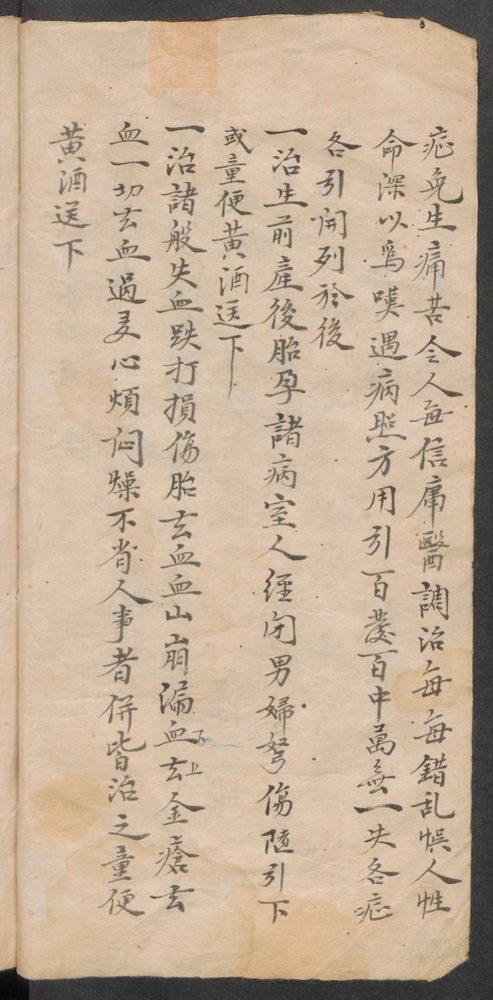 症免生痛苦令人每信庸醫調治每每錯乱悮人性
命深以爲嘆遇病照方用引百發百中萬無一失各症
各引開列於後
一治生前產後胎孕諸病室人經闭男婦努傷隨引下
或童便黄酒送下
一治諸般失血跌打損傷胎去血血山崩漏血去金瘡去
血一切去血過多心煩闷躁不省人事者併皆治之童便
黄酒送下